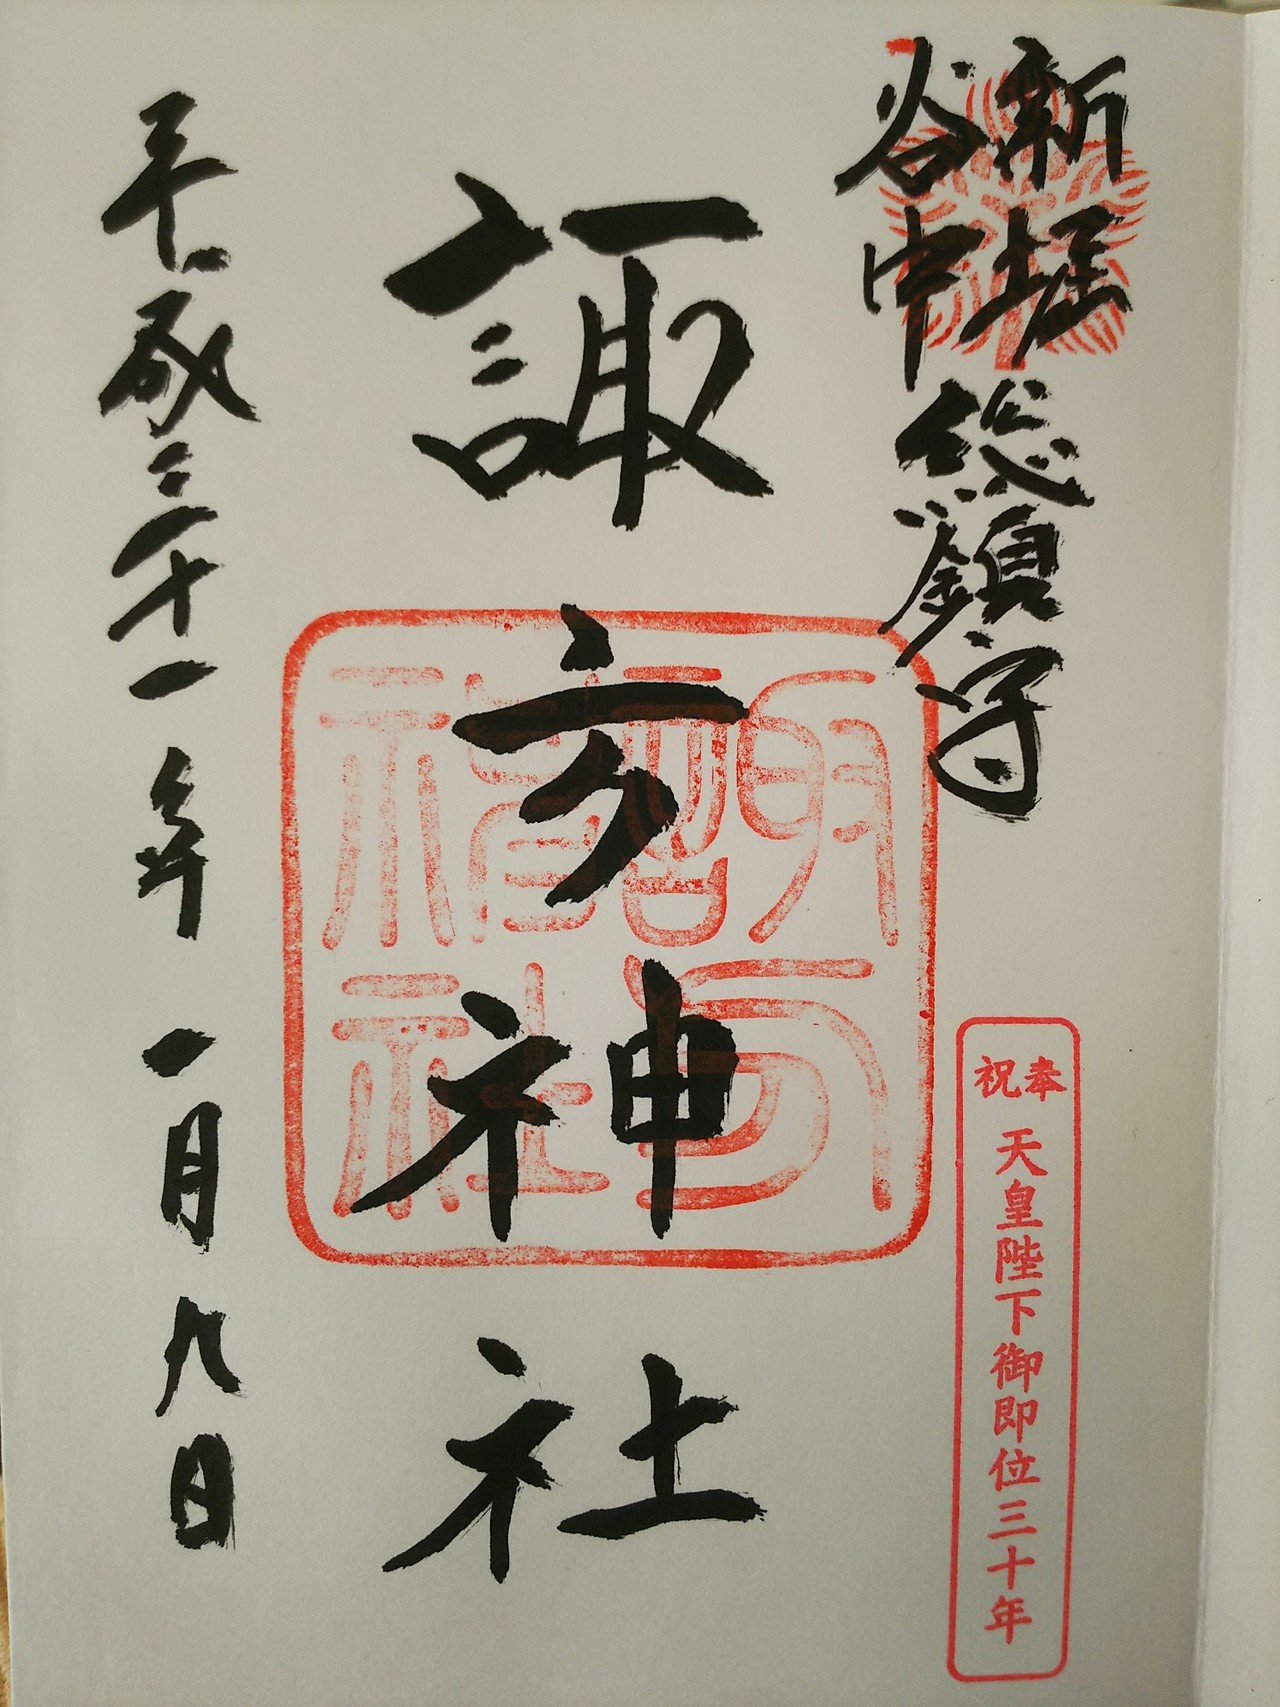 新堀
谷中
総鎮守
奉祝
天皇陛下御即位三十年
諏方神社
諏方
神社
平成三十一年一月九日